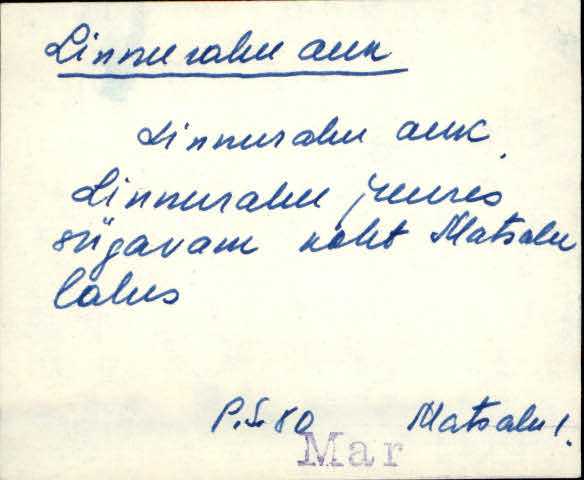 Linnurahu auk
Linnurahu auk
Linnurahu juures
sügavam koht Matsalu
lahes
P.S. 80 Matsalu l.
Mar